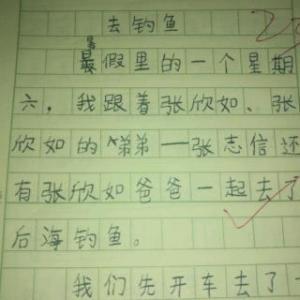 去钓鱼
暑
暑假里的一个星期
六，我跟着张欣如、张
欣如的弟弟——张志信还
有张欣如爸爸一起去了
后海钓鱼。
我们先开车去了一